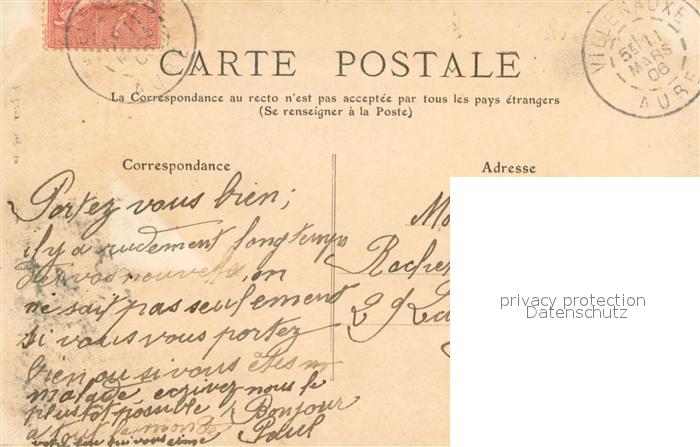 CARTE POSTALE
La Correspondance au recto n'est pas acceptée par tous les pays étrangers
(Se renseigner à la Poste)
VILLENAUXE
11
MARS
06
AUBE
Correspondance
Adresse
Portez vous bien;
il y a rudement longtemps
de vos nouvelles, on
ne sait pas seulement
si vous vous portez
bien ou si vous êtes
malade ecrivez nous le
plus tôt possible Bonjour
a tout le monde Paul
votre qui vous aime
Rachel
2 R
privacy protection
Datenschutz